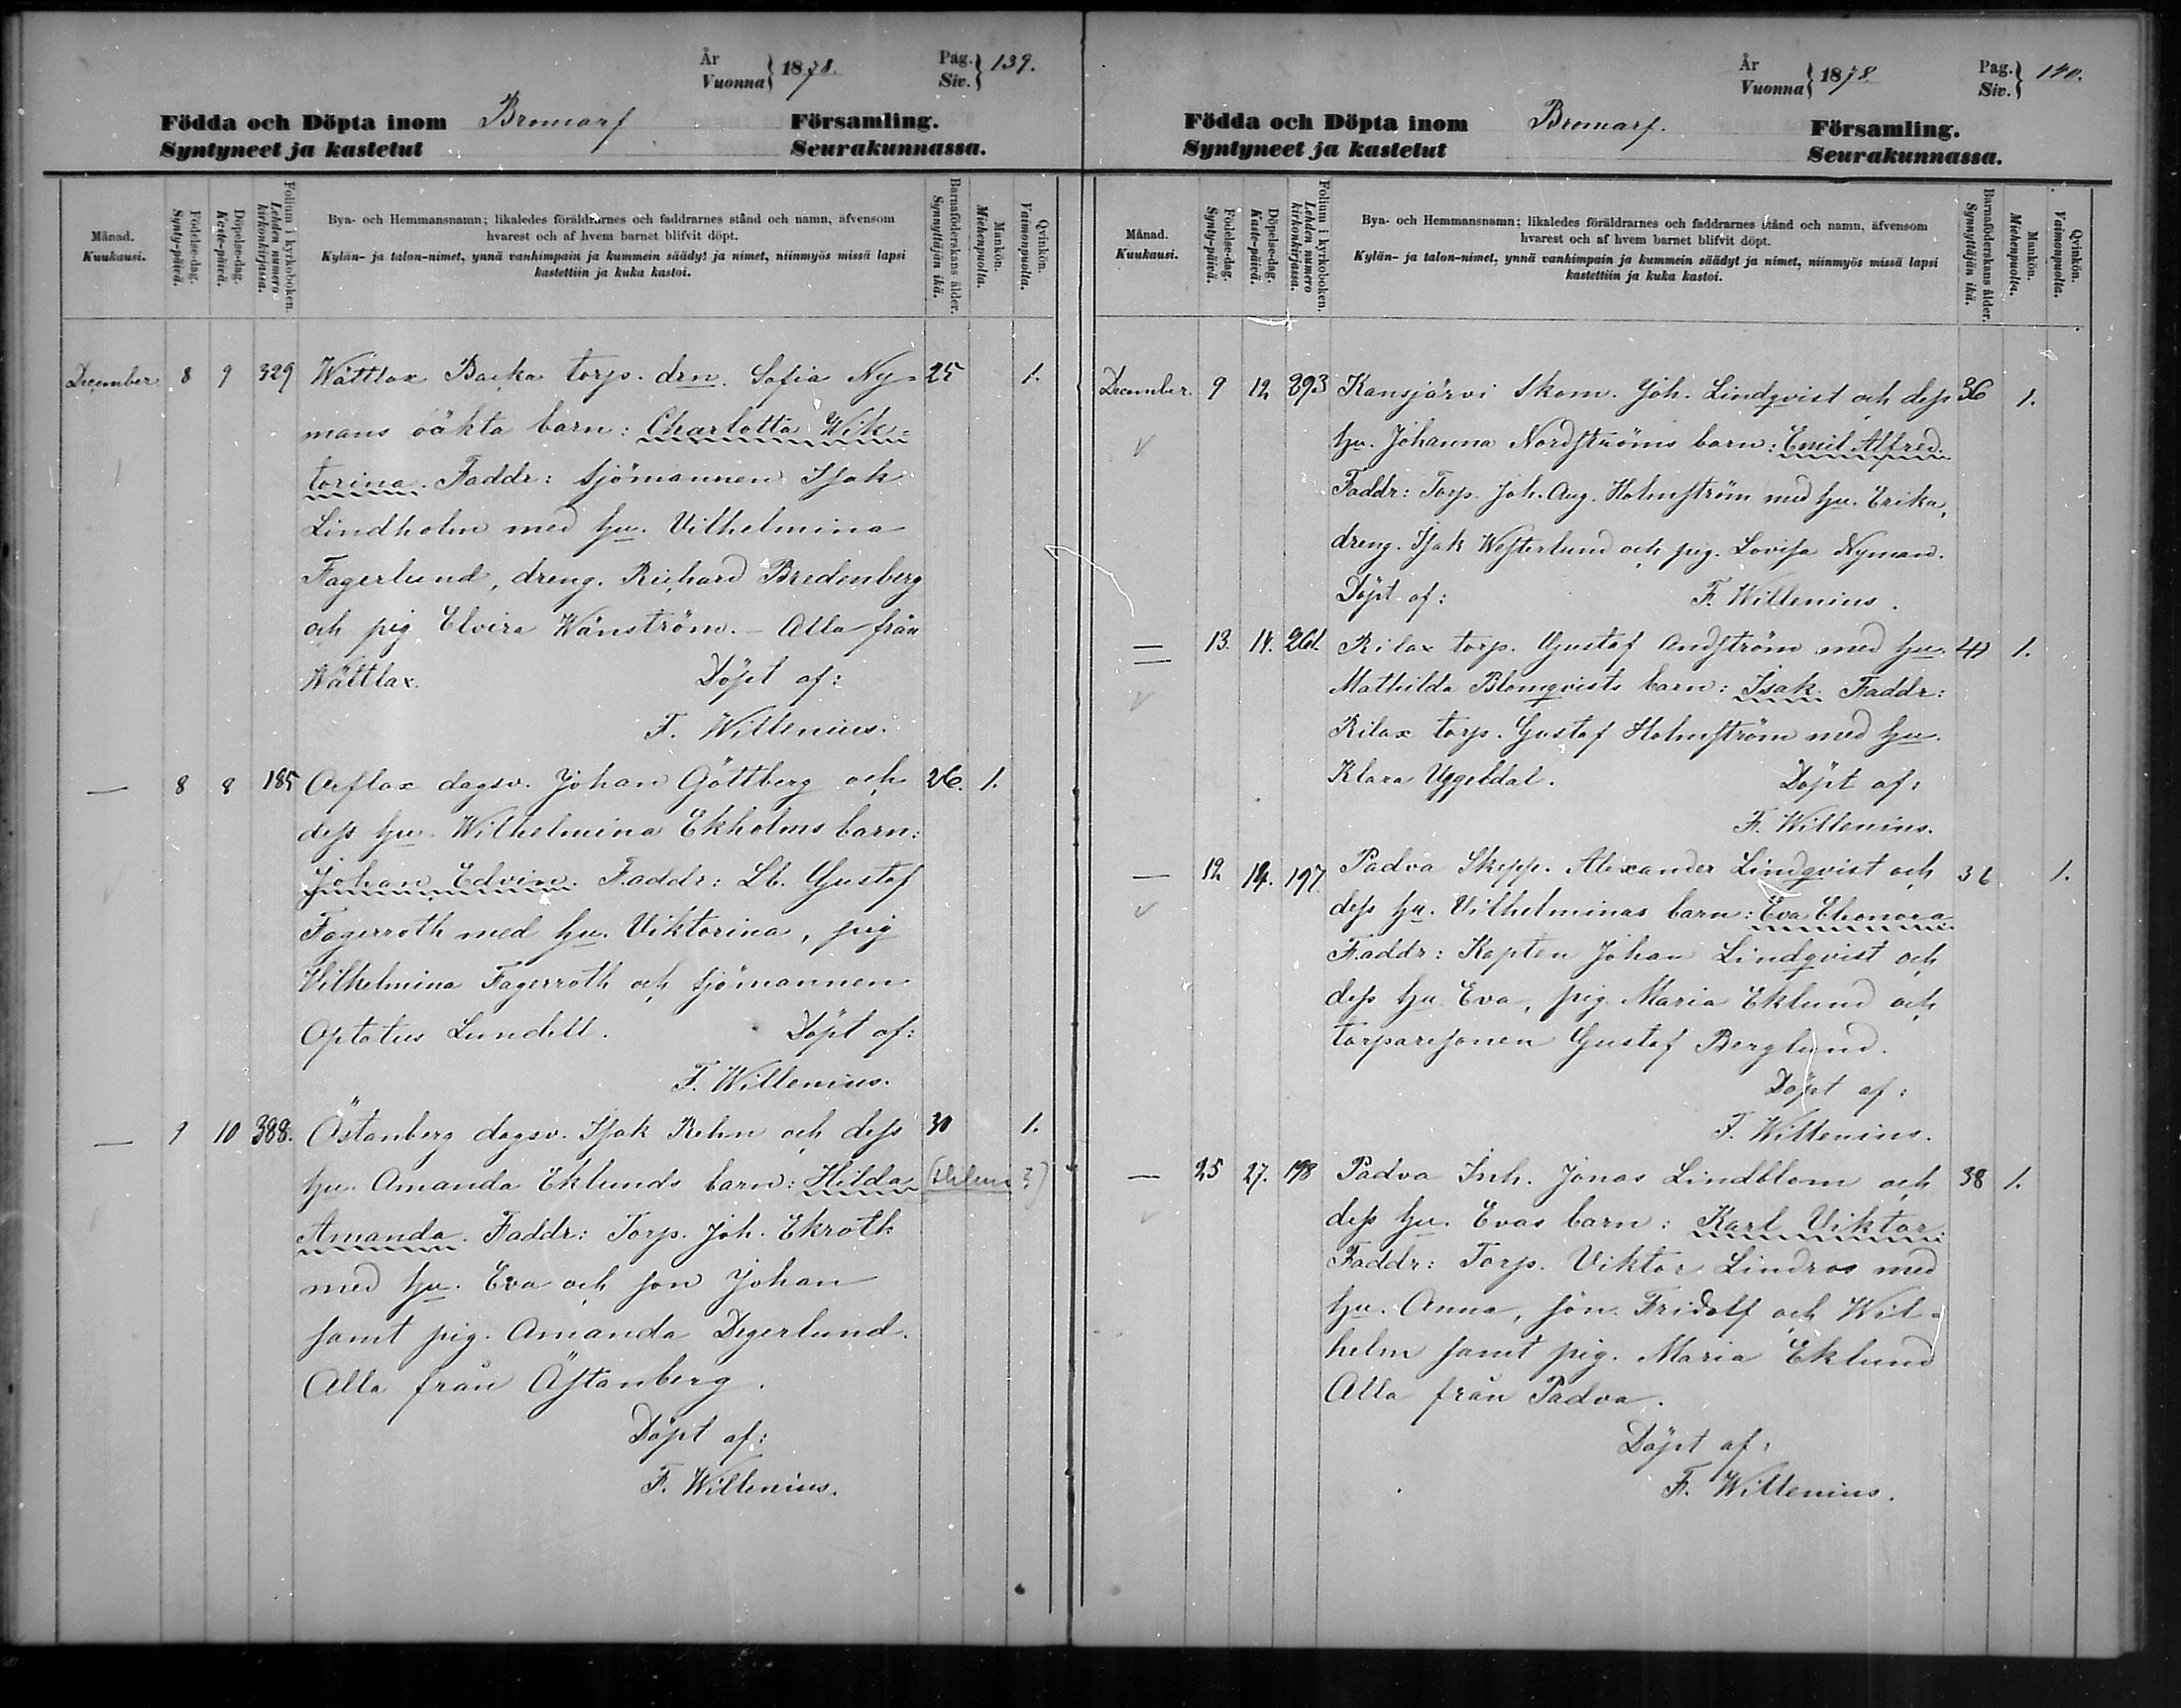 År
Vuonna } 1878.
Pag.
Siv. } 139.
Födda och Döpta inom Bromarf Församling.
Syntyneet ja kastetut Seurakunnassa.
Månad.
Kuukausi.
Födelse-dag.
Synty-päivä.
Döpelse-dag.
Kaste-päivä.
Folium i kyrkoboken.
Lehden numero
kirkonkirjassa.
Bya- och Hemmansnamn; likaledes föräldrarnes och faddrarnes stånd och namn, äfvensom
hvarest och af hvem barnet blifvit döpt.
Kylän- ja talon-nimet, ynnä vanhimpain ja kummein säädyt ja nimet, niinmyös missä lapsi
kastettiin ja kuka kastoi.
Barnaföderskans ålder.
Synnyttäjän ikä.
Mankön.
Miehenpuolta.
Qvinkön.
Vaimonpuolta.
December 8 9 329 Wättlax Backa torp. drn. Sofia Ny- 25 1.
mans oäkta barn: Charlotta Wik-
torina. Faddr: Sjömannen Isak
Lindholm med hu. Vilhelmina
Fagerlund, dreng. Richard Bredenberg
och pig Elvira Wänström. - Alla från
Wättlax. Döpt af:
F. Willenius.
— 8 8 185 Öeflax dagsv. Johan Göttberg och 26. 1.
dess hu. Wilhelmina Ekholms barn:
Johan Edvin. Faddr: Lb. Gustaf
Fagerroth med hu. Viktorina, pig
Vilhelmina Fagerroth och sjömannen
Optatus Lundell. Döpt af:
F. Willenius.
— 9 10 388. Östanberg dagsv. Isak Rehn och dess 30 1.
hu. Amanda Eklunds barn: Hilda
Amanda. Faddr: Torp. Joh. Ekroth
med hu. Eva och son Johan
samt pig. Amanda Degerlund.
Alla från Östanberg.
Döpt af:
F. Willenius.
År
Vuonna } 1878
Pag.
Siv. } 140.
Födda och Döpta inom Bromarf. Församling.
Syntyneet ja kastetut Seurakunnassa.
Månad.
Kuukausi.
Födelse-dag.
Synty-päivä.
Döpelse-dag.
Kaste-päivä.
Folium i kyrkoboken.
Lehden numero
kirkonkirjassa.
Bya- och Hemmansnamn; likaledes föräldrarnes och faddrarnes stånd och namn, äfvensom
hvarest och af hvem barnet blifvit döpt.
Kylän- ja talon-nimet, ynnä vanhimpain ja kummein säädyt ja nimet, niinmyös missä lapsi
kastettiin ja kuka kastoi.
Barnaföderskans ålder.
Synnyttäjän ikä.
Mankön.
Miehenpuolta.
Qvinkön.
Vaimonpuolta.
December. 9 12 293 Kansjärvi Skom. Joh. Lindqvist och dess 36 1.
hu. Johanna Nordströms barn: Emil Alfred.
Faddr: Torp. Joh. Aug. Holmström med hu. Erika,
dreng. Isak Westerlund och pig. Lovisa Nyman.
Döpt af: F. Willenius.
— 13. 14. 261. Rilax torp. Gustaf Andström med hu. 41 1.
Mathilda Blomqvists barn: Isak. Faddr:
Rilax torp. Gustaf Holmström med hu.
Klara Uggeldal. Döpt af:
F. Willenius.
— 12 14. 197. Padva Skepp. Alexander Lindqvist och 36 1.
dess hu. Vilhelminas barn: Eva Eleonora
Faddr: Kapten Johan Lindqvist och
dess hu. Eva, pig. Maria Eklund och
torparesonen Gustaf Berglund.
Döpt af:
F. Willenius.
— 25 27. 198 Padva Inh. Jonas Lindblom och 38 1.
dess hu. Evas barn: Karl Viktor.
Faddr: Torp. Viktor Lindros med
hu. Anna, sön. Fridolf och Wil-
helm samt pig. Maria Eklund
Alla från Padva.
Döpt af:
F. Willenius.